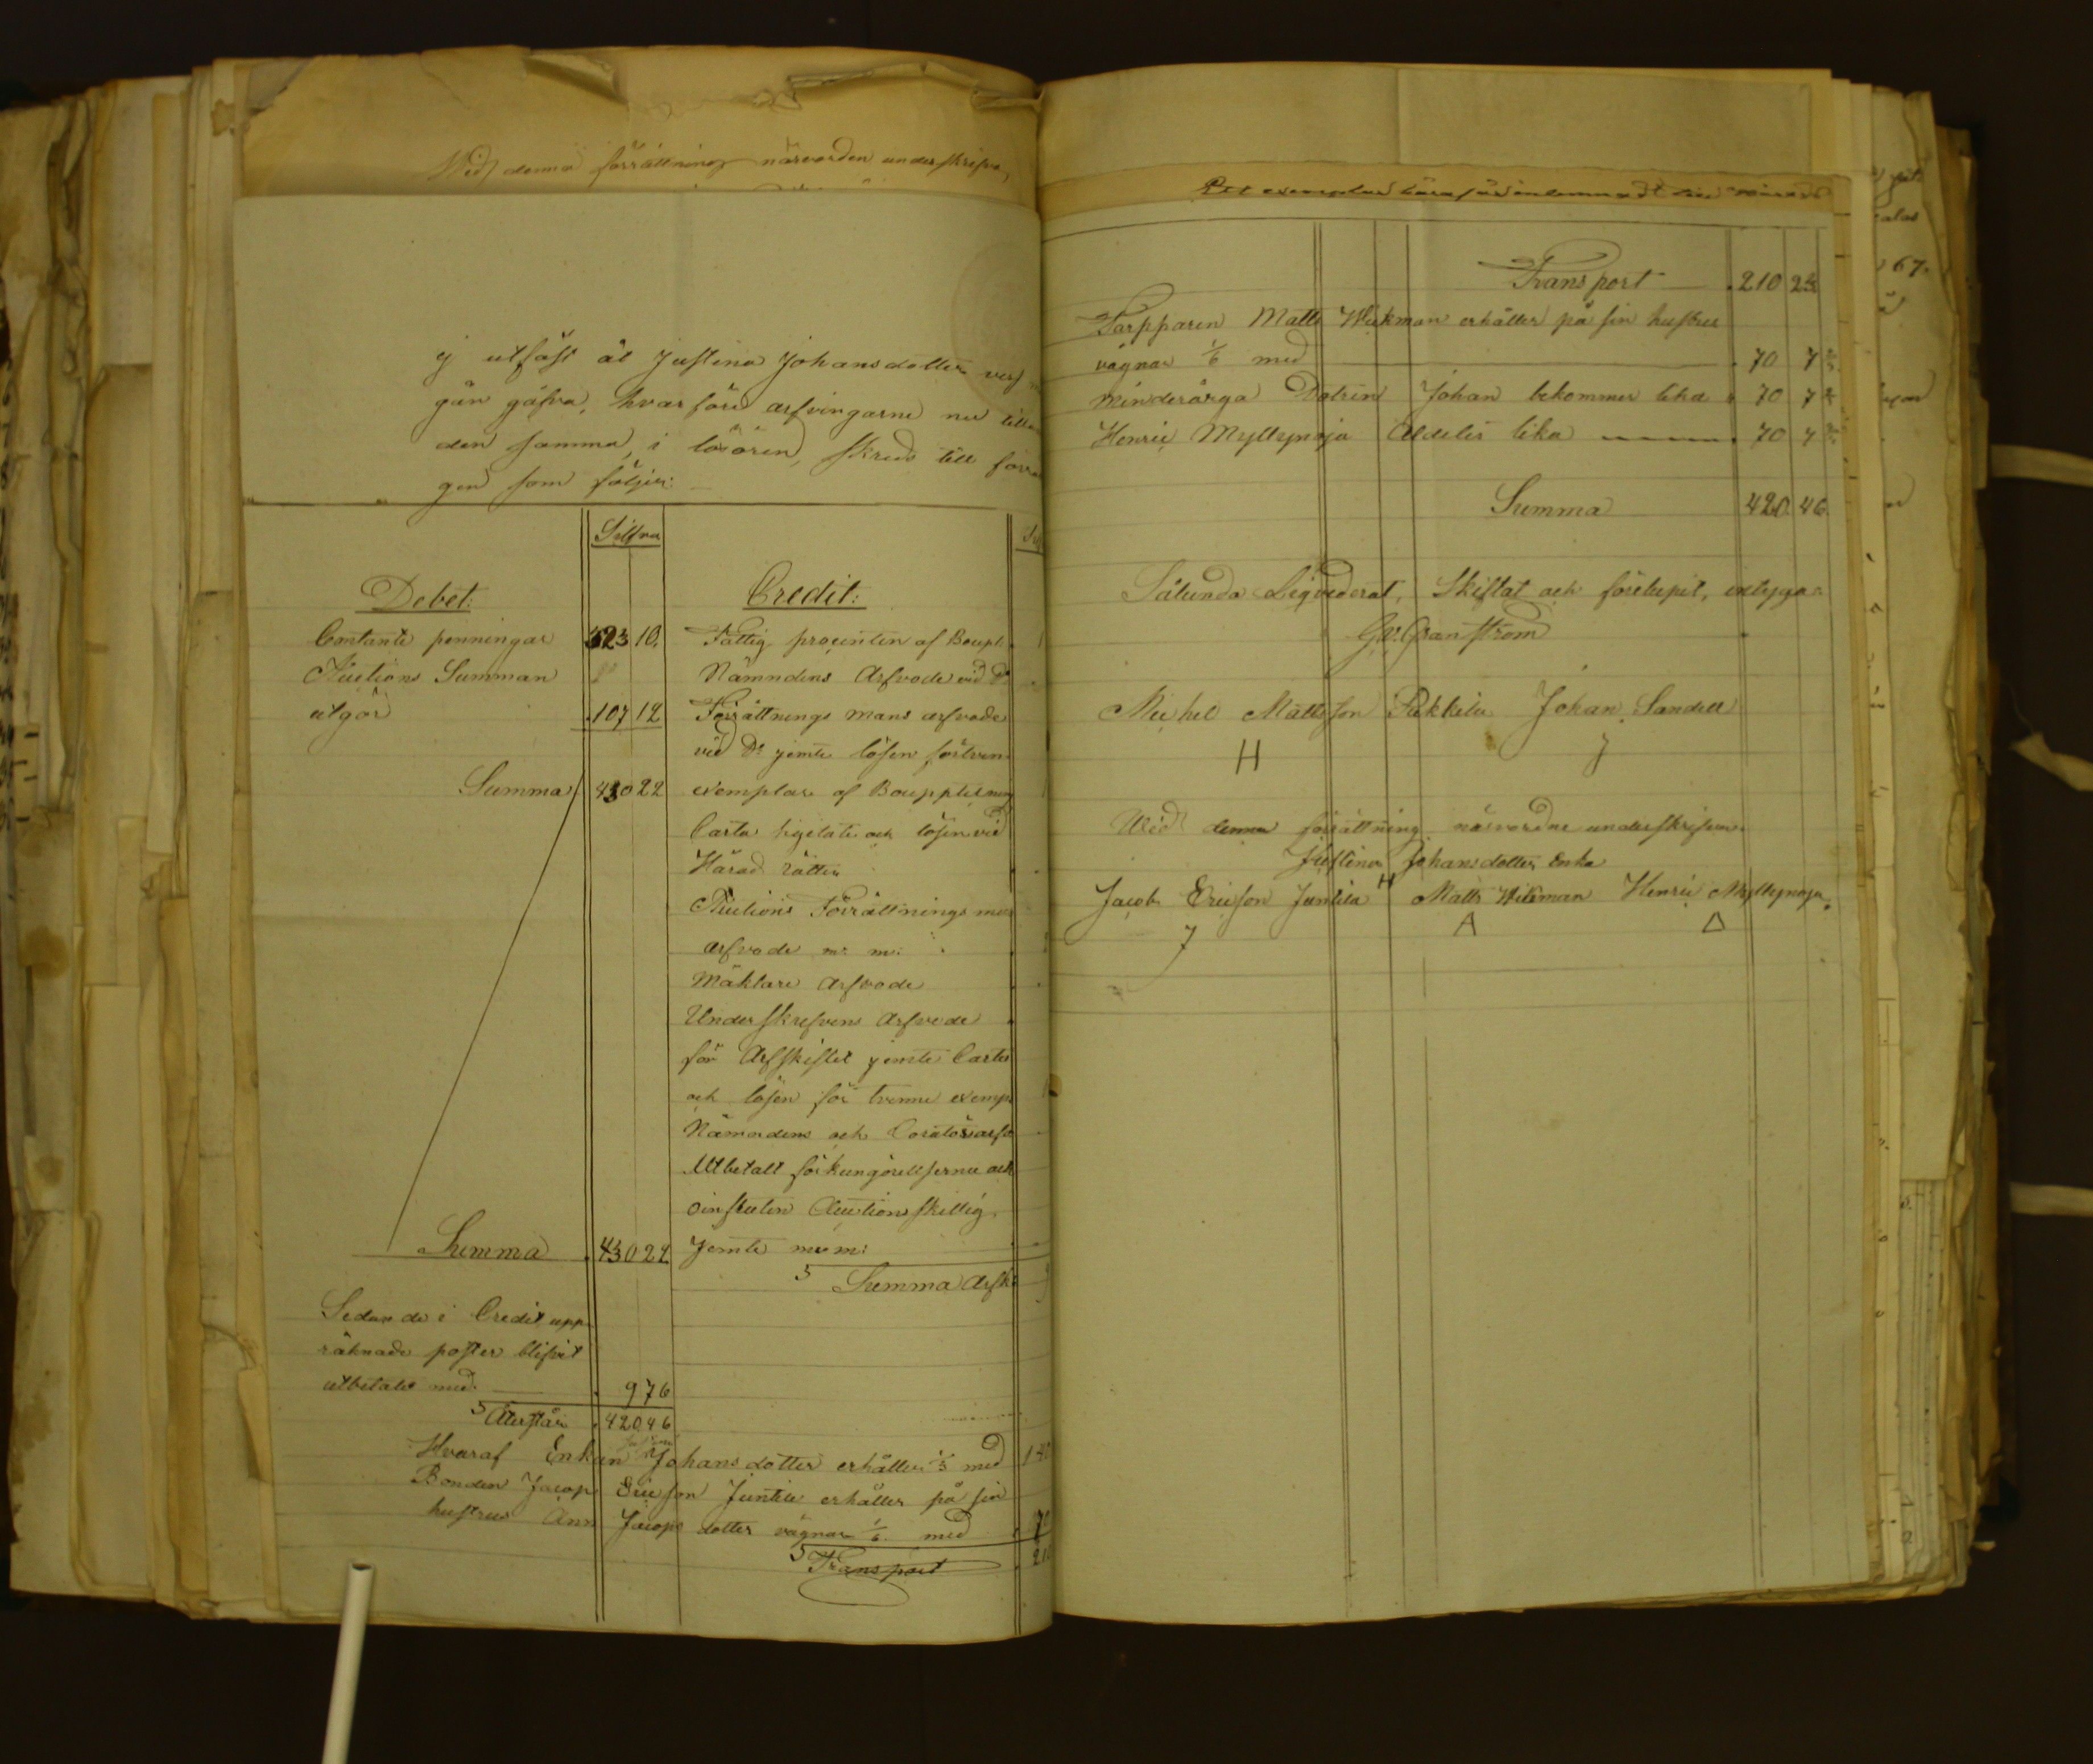 Wid denna förrättning närvarden underskrifva,
ej utfäst åt Justina Johansdotter
gåfva, hvarföre arfvingarne nu
den samma, i lösören, skreds till
gen som följer:
Silfver
Debet:
Credit:
Contante penningar 323 10.
Auctions Summan
utgör 107 12
Summa 430 22
Fattig procenten af
Nämndens Arfvode vid Do
Förrättnings mans arfvode
vid Do jemte lösen för
exemplar af Bouppteckning
Carta och lösen vid
Härads rätten
Auctions Förrättnings
arfvode m: m:
Mäklare Arfvode
Underskrefvens Arfvode
för Arfskiftet jemte Carta
och lösen för trenne exemp
Nämndens och
Utbetalt för kungörelserne och
Auctions skillig
Jemte m: m:
Summa
Summa 430 22
Sedan de i Credit upp
räknade poster blifvit
utbetalte med 9 76
Återstår 420 46
Hvaraf Enkan Justina Johansdotter erhåller 1/3 med 140
Bonden Jacop Ericson Juntila erhåller på sin
hustrus Ann Jacops dotter vägnar 1/6 med 70
Transport 210
Ett exemplar häraf
Transport 210 23
Torpparen Matts Wikman erhåller på sin hustrus
vägnar 1/6 med 70 7
minderåriga Johan bekommer lika 70 7
Henric Myllynoja Aldeles lika 70 7
Summa 420. 46.
Sålunda Liqviderat, Skiftat och förelupit, intygar
Granström
Michel Mattsson Pakkila Johan Sandell
H J
Wid denna förrättning närvordne underskrifva
Justina Johansdotter Enka
H
Jacob Ericson Juntila Matts Wikman Henric Myllynoja.
J A Δ
67.